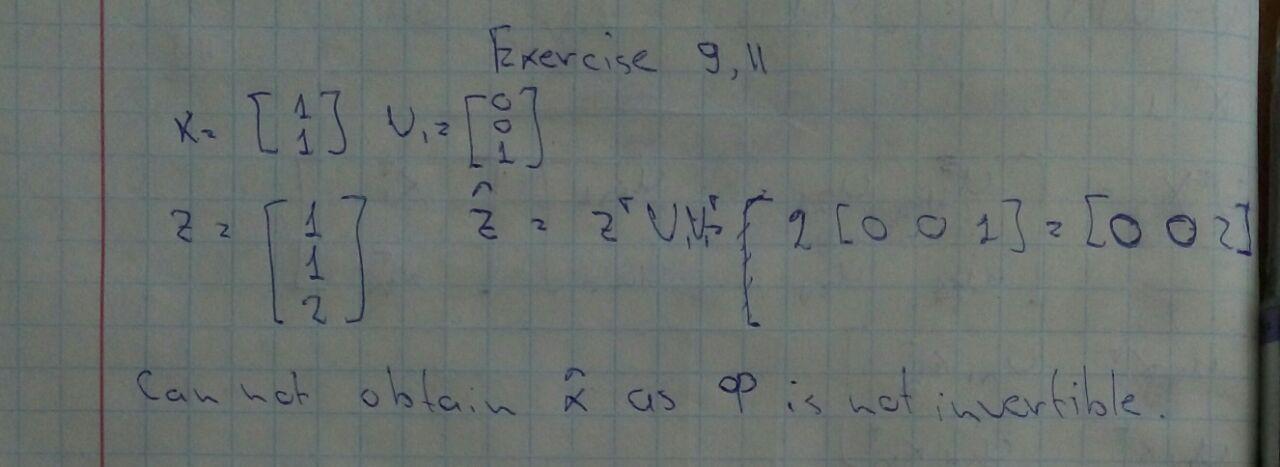 Exercise 9,11
x = [1 1] V₁ = [0 0 1]
z = [1 1 2] ẑ = zᵀ V₁V₁ᵀ = 2 [0 0 1] = [0 0 2]
Can not obtain x̂ as Φ is not invertible.